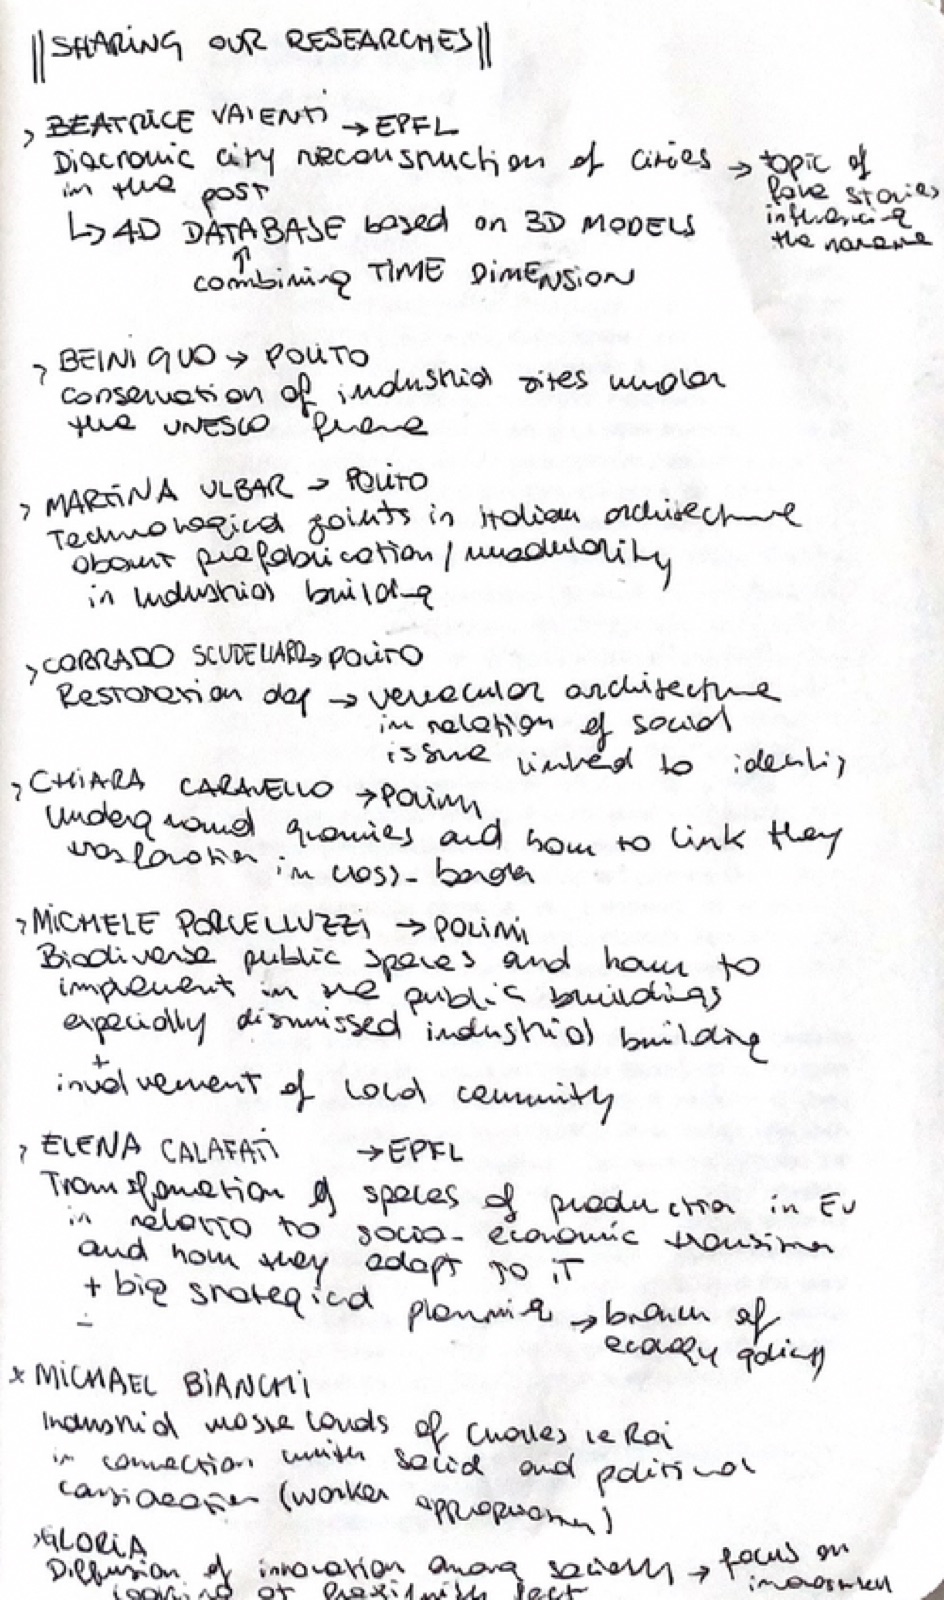 ||SHARING OUR RESEARCHES||
> BEATRICE VAIENTI → EPFL
Diacronic city reconstruction of cities → topic of
in the past
fake stories
influencing
the
↳ 4D DATABASE based on 3D MODELS
↑
combining TIME DIMENSION
> BEINI GUO → POLITO
conservation of industrial sites under
the UNESCO frame
> MARTINA ULBAR → POLITO
Technological joints in italian architecture
about prefabrication / modularity
in industrial building
> CORRADO SCUDELLARO → POLITO
Restoration → vernacular architecture
in relation of social
issue linked to
> CHIARA CARAVELLO → POLIMI
Underground and how to link they
in cross-border
> MICHELE PORCELLUZZI → POLIMI
Biodiverse public spaces and how to
implement in the public buildings
especially dismissed industrial building
+
involvement of local community
> ELENA CALAFATI → EPFL
Transformation of spaces of production in EU
in to socio-economic transition
and how they adapt to it
+ big strategical planning → branch of
ecology policy
x MICHAEL BIANCHI
Industrial waste lands of Charles le Roi
in connection with social and political
(worker
> GLORIA
Diffusion of innovation among society → focus on
looking at